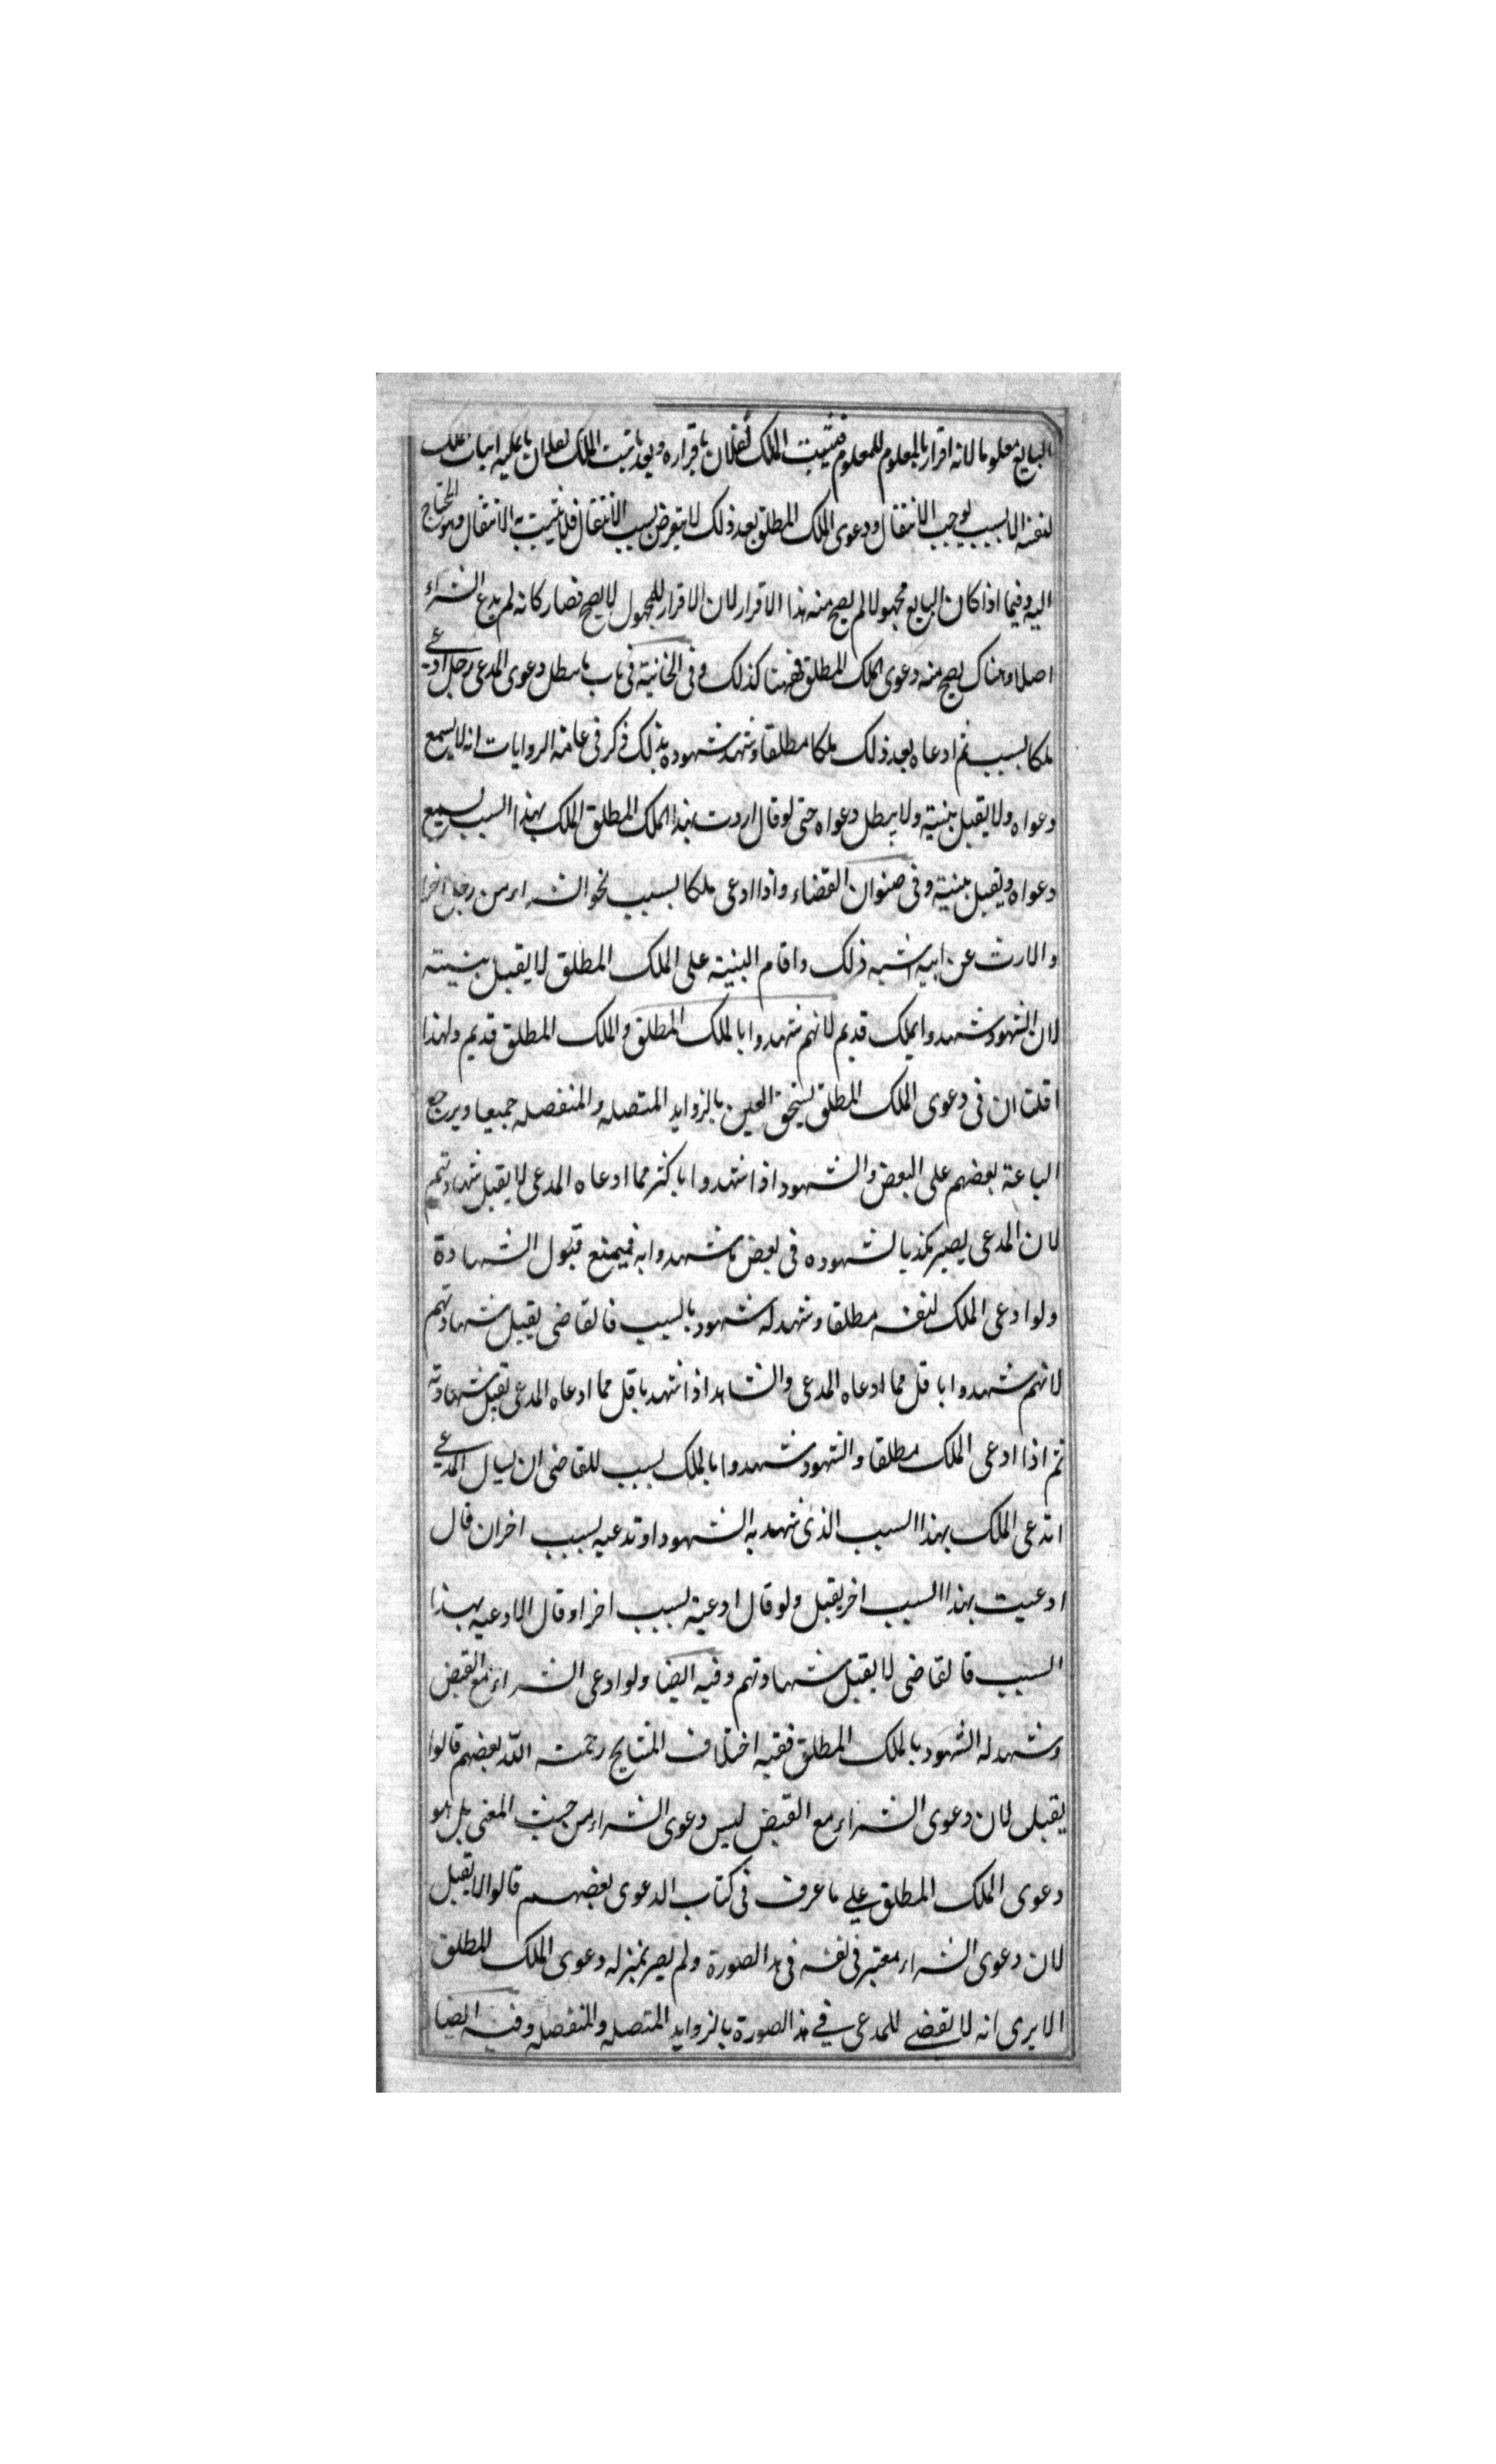 البايع معلوما لانه اقرار بالمعلوم للمعلوم فيثبت الملك لفلان باقراره وبعد ما ثبت الملك لفلان لا يمكنه اثبات الملك
لنفسه الا بسبب يوجب الانتقال ودعوى الملك المطلق بعد ذلك لا يتعرض بسبب الانتقال فلا يثبت به الانتقال وهو المحتاج
اليه وفيما اذا كان البايع مجهولا لم يصح منه هذا الاقرار لان الاقرار للمجهول لا يصح فصار كانه لم يدع الشراء
اصلا وهناك يصح منه دعوى الملك المطلق فههنا كذلك وفي الخانية في باب ما يبطل دعوى المدعي رجل ادعى
ملكا بسبب ثم ادعاه بعد ذلك ملكا مطلقا وشهد شهوده بذلك ذكر في عامة الروايات انه لا يسمع
دعواه ولا يقبل بينته ولا يبطل دعواه حتى لو قال اردت بهذا الملك المطلق الملك بهذا السبب يسمع
دعواه ويقبل بينته وفي صنوان القضاء واذا ادعى ملكا بسبب نحو الشراء من رجل اخر
والارث عن ابيه اشبه ذلك واقام البينة على الملك المطلق لا يقبل بينته
لان الشهود شهدوا بملك قديم لانهم شهدوا بالملك المطلق والملك المطلق قديم ولهذا
اقلت ان في دعوى الملك المطلق يستحق العين بالزوايد المتصلة والمنفصلة جميعا ويرجع
الباعة بعضهم على البعض والشهود اذا شهدوا باكثر مما ادعاه المدعي لا يقبل شهادتهم
لان المدعي يصير مكذبا لشهوده في بعض ما شهدوا به فيمنع قبول الشهادة
ولو ادعى الملك لنفسه مطلقا وشهد له شهود بالسبب فالقاضي يقبل شهادتهم
لانهم شهدوا باقل مما ادعاه المدعي والشاهد اذا شهد باقل مما ادعاه المدعي تقبل شهادته
ثم اذا ادعى الملك مطلقا والشهود شهدوا بالملك بسبب للقاضي ان يسال المدعي
اتدعي الملك بهذا السبب الذي شهد به الشهود او تدعيه بسبب اخر ان قال
ادعيت بهذا السبب اخر يقبل ولو قال ادعيته بسبب اخر او قال لا ادعيه بهذا
السبب فالقاضي لا يقبل شهادتهم وفيه ايضا ولو ادعى الشراء مع القبض
وشهد له الشهود بالملك المطلق ففيه اختلاف المشايخ رحمت الله بعضهم قالوا
يقبل لان دعوى الشراء مع القبض ليس دعوى الشراء من حيث المعنى بل هو
دعوى الملك المطلق على ما عرف في كتاب الدعوى بعضهم قالوا لا يقبل
لان دعوى الشراء معتبر في نفسه في هذا الصورة ولم يصر بمنزلة دعوى الملك المطلق
الا يرى انه لا يقضى للمدعي في هذا الصورة بالزوايد المتصلة والمنفصلة وفيه ايضا